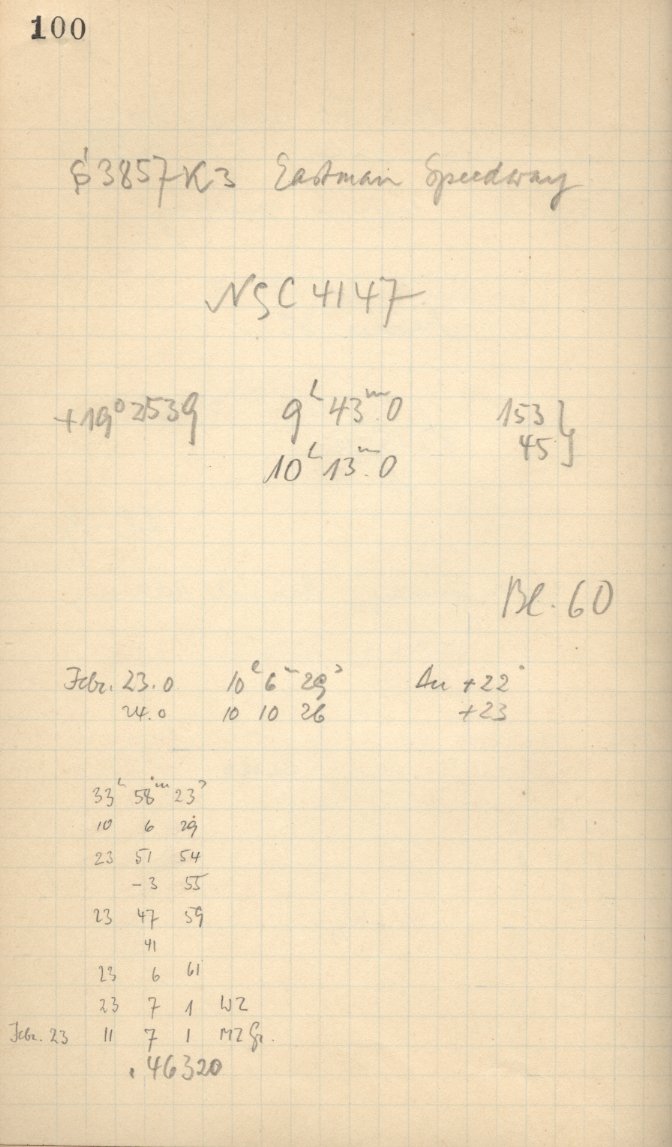 100
S 3857 K3 Eastman Speedway
NGC 4147
+19° 2539 9h 43m.0 153
10h 13m.0 45
Bl. 60
Febr. 23.0 10h 6m 29s Au +22s
24.0 10 10 26 +23
33h 58m 23s
10 6 29
23 51 54
-3 55
23 47 59
41
23 6 61
23 7 1 WZ
Febr. 23 11 7 1 MZ Gr.
.46320